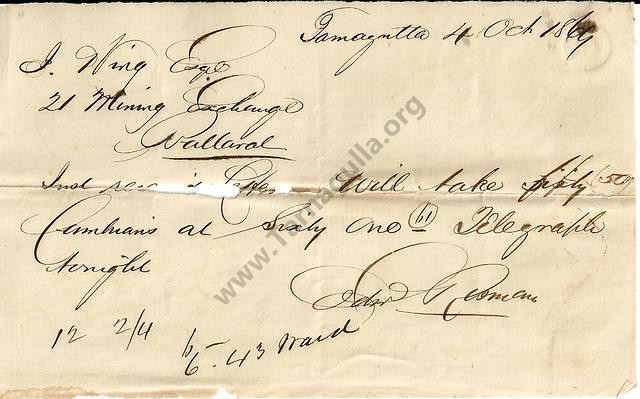 Tarnagulla 4 Oct 1869
J. Wing Esqe
21 Mining Exchange
Ballarat
Will take fifty (50)
Cambrians at Sixty One (61) Telegraph
tonight
Edw
12 2/4
6.43 Ward
www.Tarnagulla.org